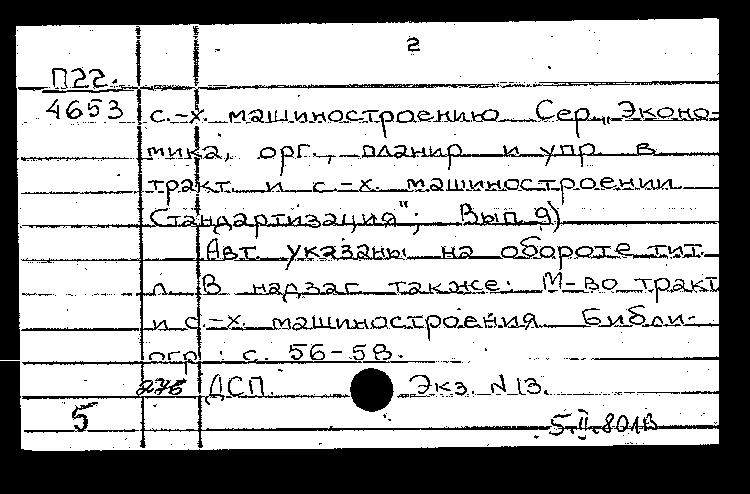 2
П22.
4653 с.-х. машиностроению Сер. „Эконо-
мика, орг., планир и упр. в
тракт. и с.-х. машиностроении
Стандартизация"; Вып 9)
Авт. указаны на обороте тит.
л. В надзаг также: М-во тракт
и с.-х. машиностроения Библи-
огр : с. 56-58.
ДСП. Экз. N 13.
5